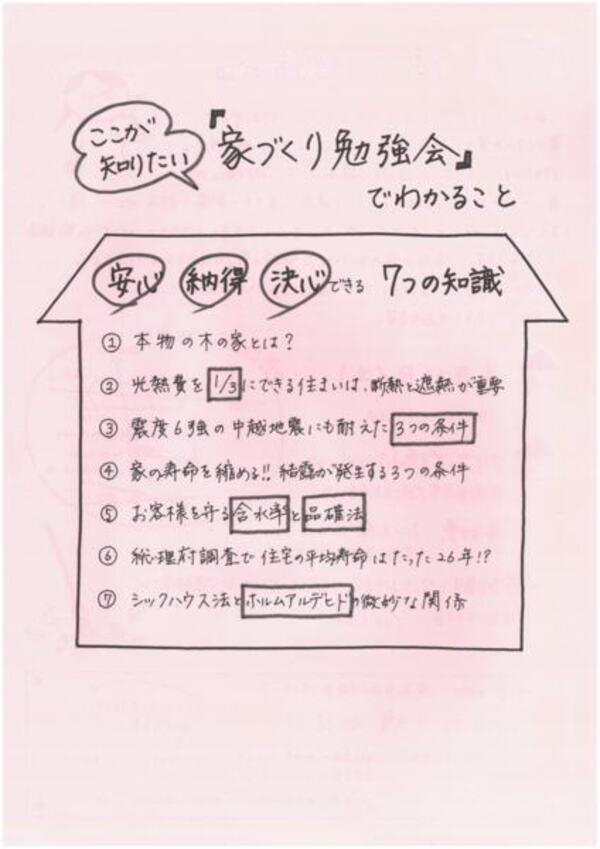 ここが
知りたい
『家づくり勉強会』
でわかること
安心 納得 決心できる 7つの知識
① 本物の木の家とは?
② 光熱費を1/3にできる住まいは、断熱と遮熱が重要
③ 震度6強の中越地震にも耐えた3つの条件
④ 家の寿命を縮める!! 結露が発生する3つの条件
⑤ お客様を守る含水率と品確法
⑥ 総理府調査で住宅の平均寿命はたった26年!?
⑦ シックハウス法とホルムアルデヒドの微妙な関係